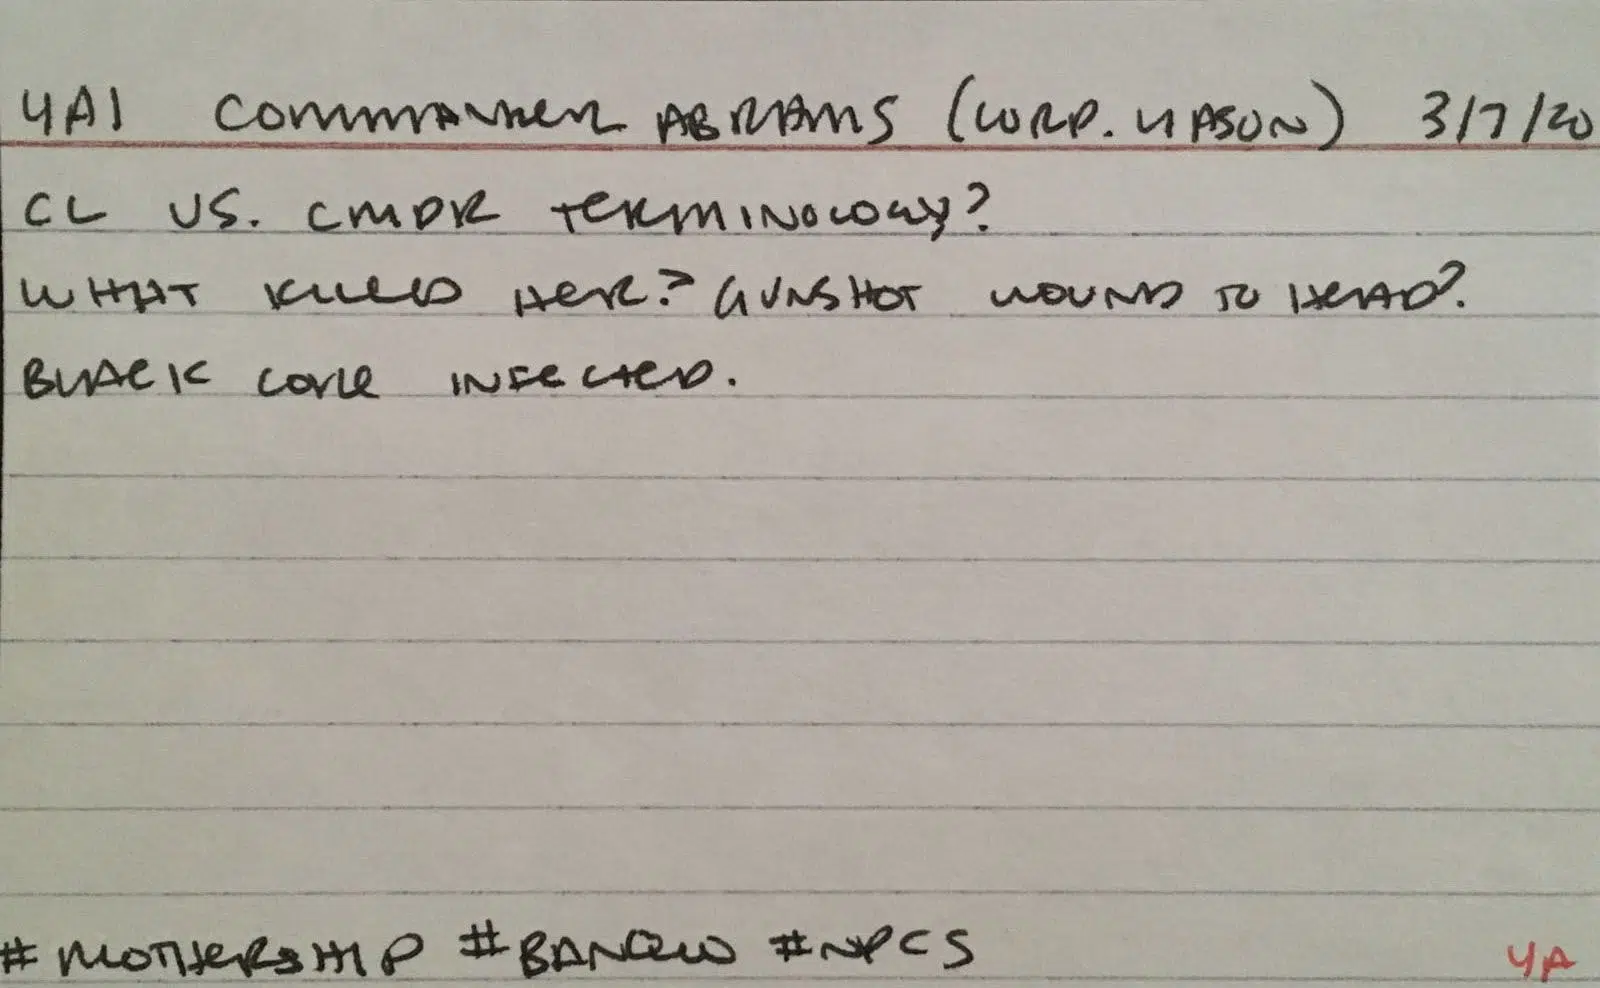 4A1 COMMANDER ABRAMS (CORP. LIASON) 3/7/20
CL VS. CMDR TERMINOLOGY?
WHAT KILLED HER? GUNSHOT WOUND TO HEAD?
BLACK CODE INFECTED.
#MOTHERSHIP #BANQUO #NPCS
4A